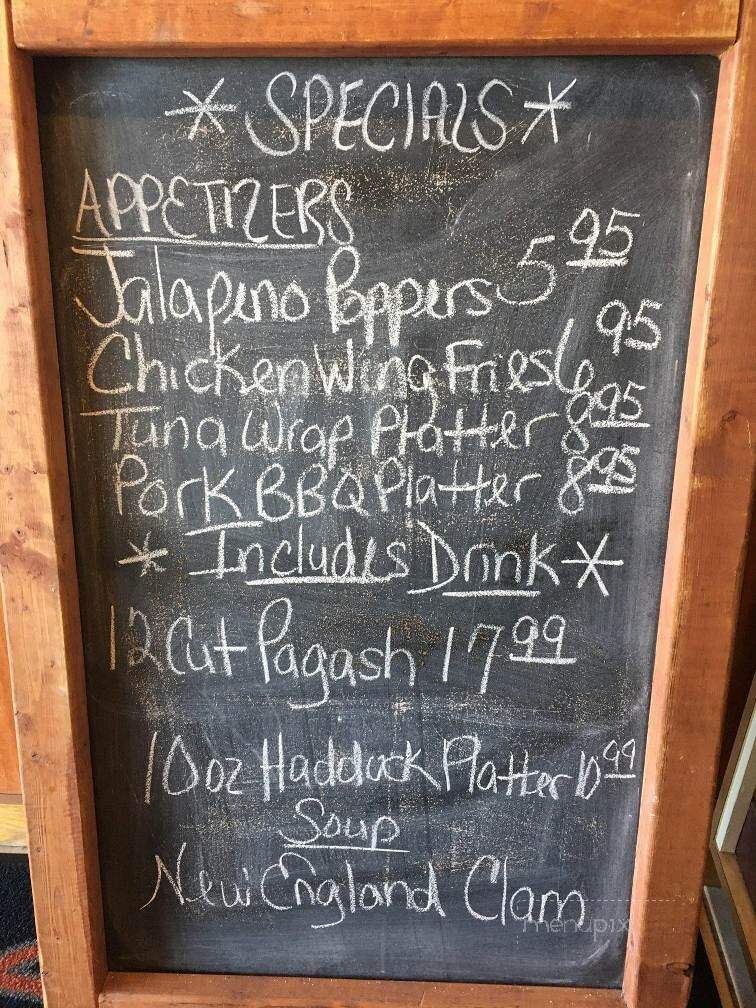 * SPECIALS *
APPETIZERS
Jalapeno Poppers 5 95
Chicken Wing Fries 6 95
Tuna Wrap Platter 8 95
Pork BBQ Platter 8 95
* Includes Drink *
12 Cut Pagash 17 99
10 oz Haddock Platter 10 99
Soup
New England Clam
menupix